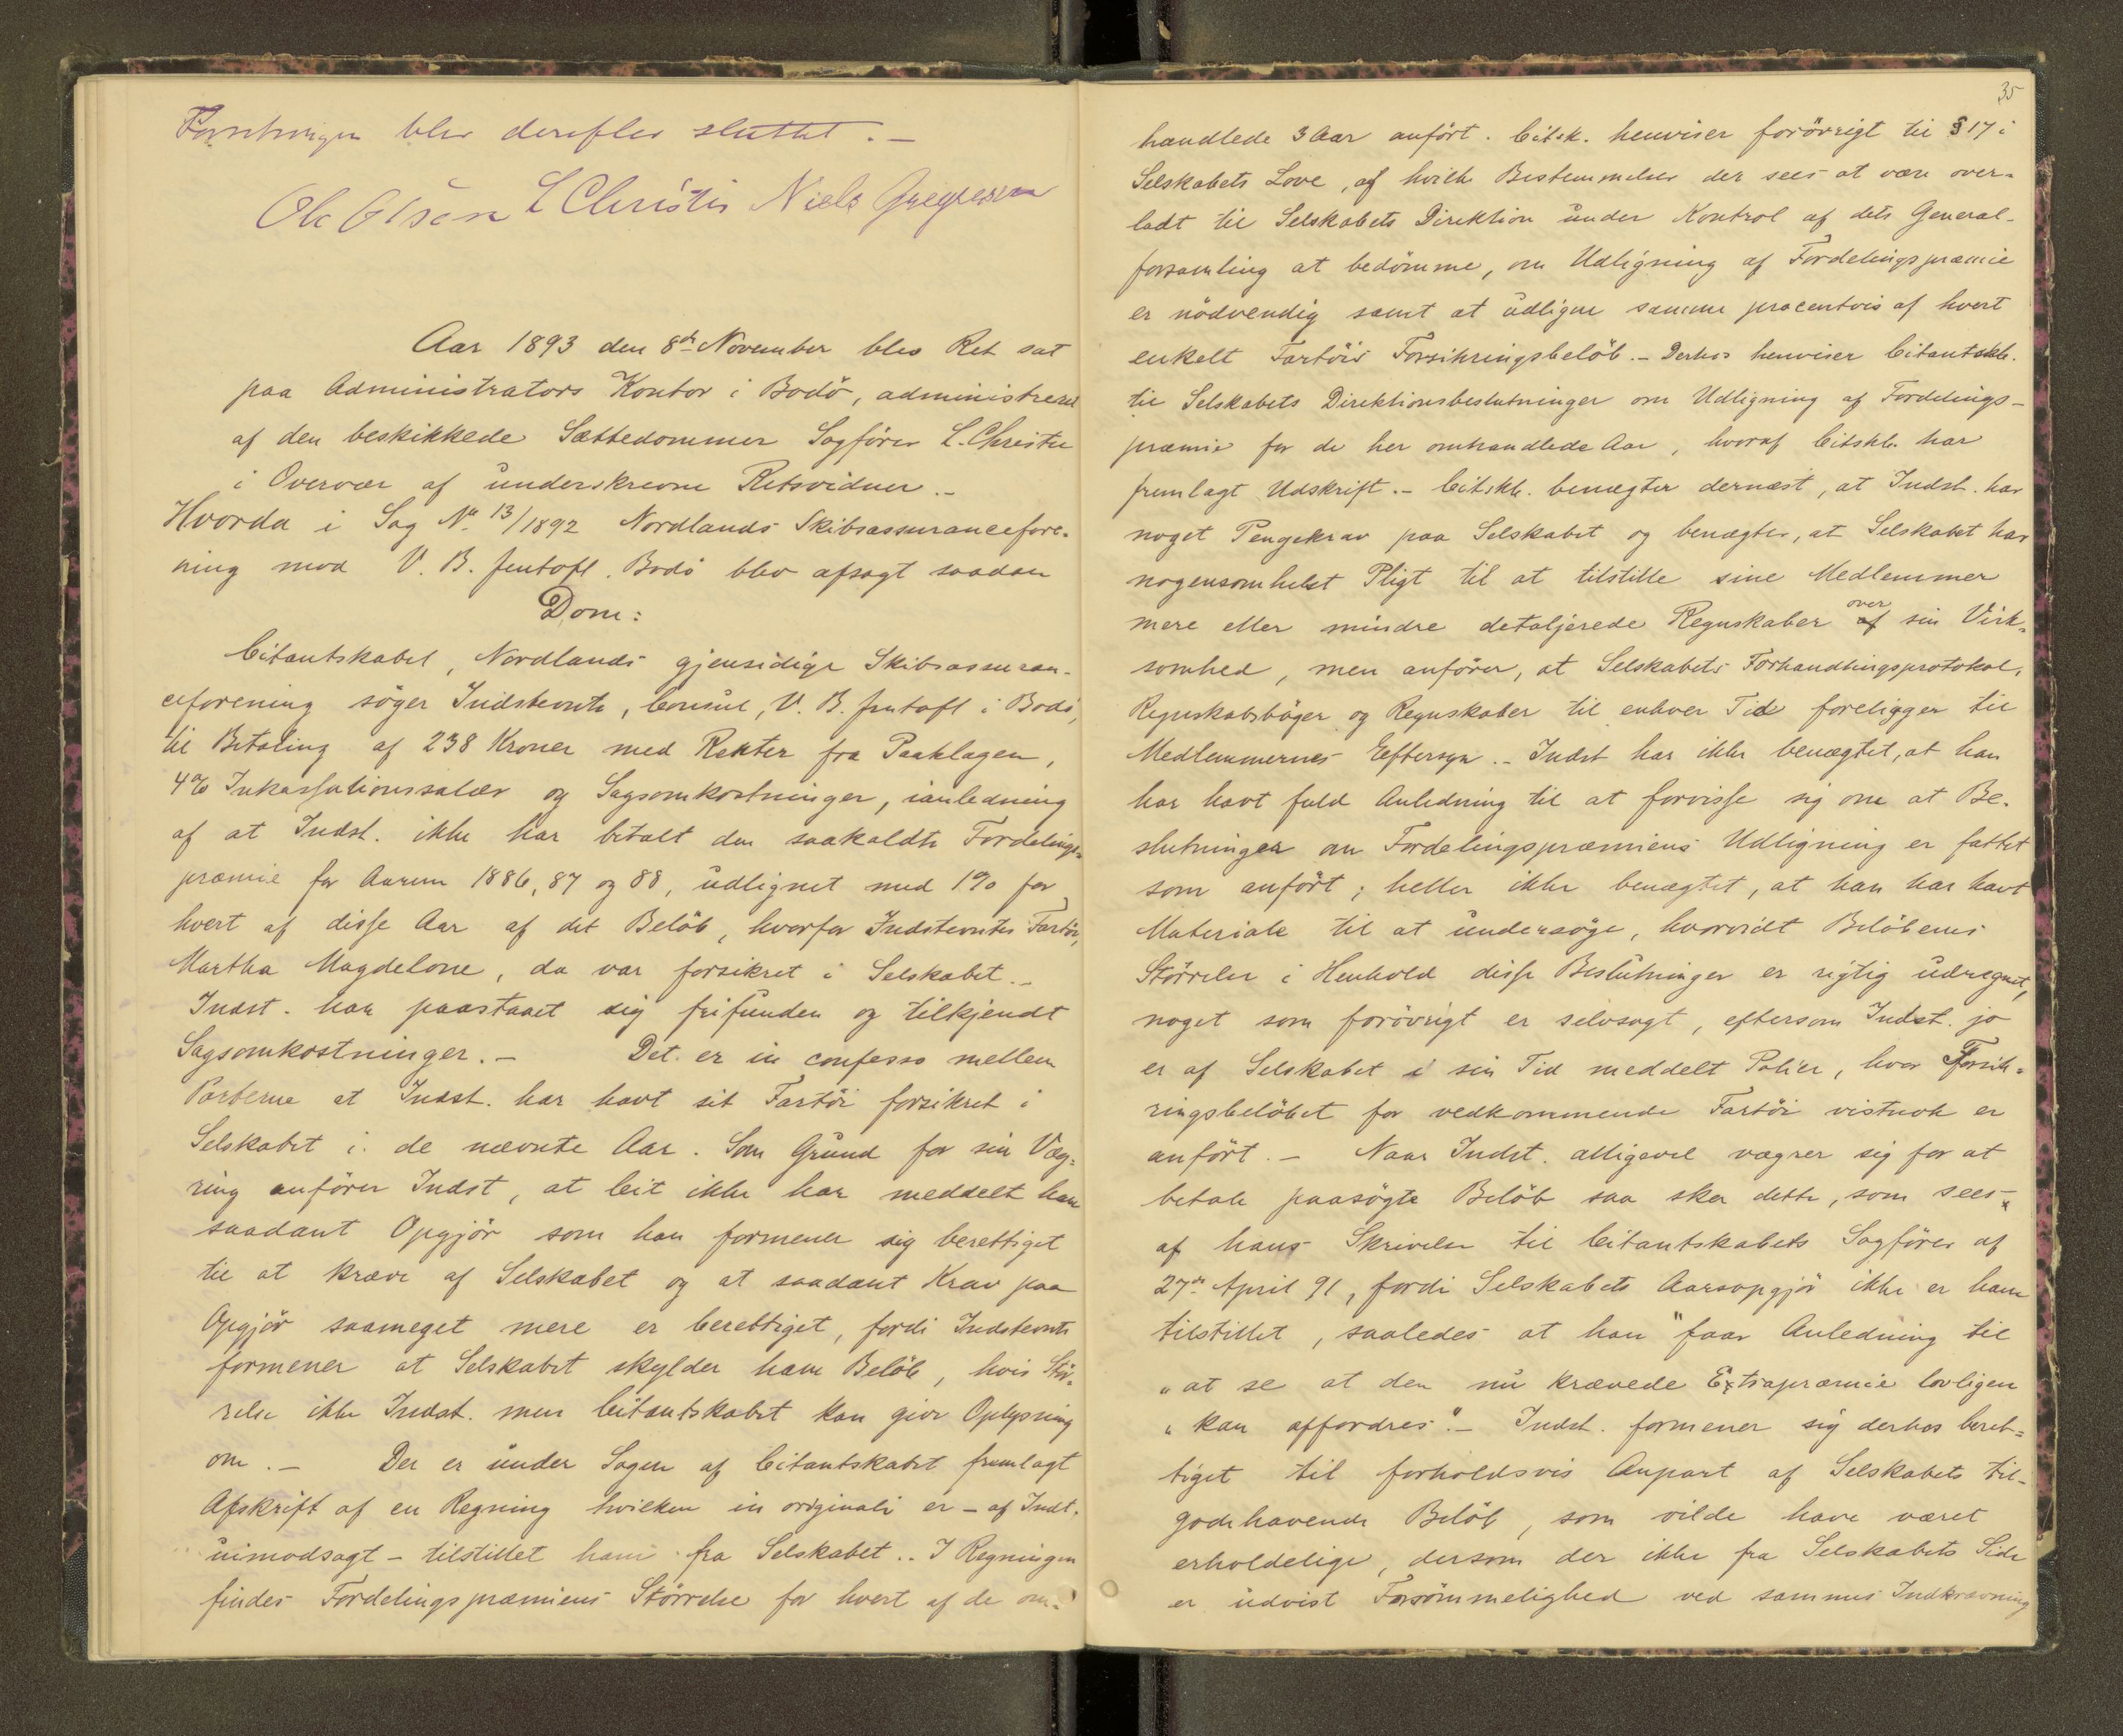 Forretningen blev derefter sluttet. –
Ole Olsen L Christie Niels Gregersen
Aar 1893 den 8de November blev Ret sat
paa Administrators Kontor i Bodö, administreret
af den beskikkede Sættedommer Sagförer L. Christie
i Overvær af underskrevne Retsvidner. –
Hvorda i Sag No 13/1892 Nordlands Skibsassurancefore-
ning mod V. B. Jentoft, Bodö blev afsagt saadan
Dom:
Citantskabet, Nordlands gjensidige Skibsassuran-
ceforening söger Indstevnte, Consul, V. B. Jentoft i Bodö,
til Betaling af 238 Kroner med Renter fra Paaklagen,
4% Inkassationssalær og Sagsomkostninger, ianledning
af at Indst. ikke har betalt den saakaldte Fordelings-
præmie for Aarene 1886, 87 og 88, udlignet med 1% for
hvert af disse Aar af det Belöb, hvorfor Indstevntes Fartöi,
Martha Magdelone, da var forsikret i Selskabet. –
Indst. har paastaaet sig frifunden og tilkjendt
Sagsomkostninger. – Det er in confesso mellem
Parterne at Indst. har havt sit Fartöi forsikret i
Selskabet i de nævnte Aar. Som Grund for sin Væg-
ring anförer Indst, at Cit ikke har meddelt ham
saadant Opgjör som han formener sig berettiget
til at kræve af Selskabet og at saadant Krav paa
Opgjör saameget mere er berettiget, fordi Indstevnte
formener at Selskabet skylder ham Belöb, hvis Stör-
relse ikke Indst. men Citantskabet kan give Oplysning
om. – Der er under Sagen af Citantskabet fremlagt
Afskrift af en Regning hvilken in originali er – af Indt.
uimodsagt – tilstillet ham fra Selskabet.. I Regningen
findes Fordelingspræmiens Störrelse for hvert af de om-
35
handlede 3 Aar anfört. Citsk. henviser forövrigt til § 17 i
Selskabets Love, af hvilke Bestemmelser der sees at være over-
ladt til Selskabets Direktion under Kontrol af dets General-
forsamling at bedömme, om Udligning af Fordelingspræmie
er nödvendig samt at udligne samme procentvis af hvert
enkelt Fartöis Forsikringsbelöb. – Derhos henviser Citantskb.
til Selskabets Direktionsbeslutninger om Udligning af Fordelings-
præmie for de her omhandlede Aar, hvoraf Citskb. har
fremlagt Udskrift. – Citskb. benægter dernæst, at Indst. har
noget Pengekrav paa Selskabet og benægter, at Selskabet har
nogensomhelst Pligt til at tilstille sine Medlemmer
mere eller mindre detaljerede Regnskaber af over sin Virk-
somhed, men anförer, at Selskabets Forhandlingsprotokol,
Regnskabsböger og Regnskaber til enhver Tid foreligger til
Medlemmernes Eftersyn. – Indst har ikke benægtet, at han
har havt fuld Anledning til at forvisse sig om at Be-
slutninger om Fordelingspræmiens Udligning er fattet
som anfört; heller ikke benægtet, at han har havt
Materiale til at undersöge, hvorvidt Belöbenes
Störrelse i Henhold disse Beslutninger er rigtig udregnet,
noget som forövrigt er selvsagt, eftersom Indst. jo
er af Selskabet i sin Tid meddelt Police, hvor Forsik-
ringsbelöbet for vedkommende Fartöi vistnok er
anfört. – Naar Indst. alligevel vægrer sig for at
betale paasögte Belöb saa sker dette, som sees
af hans Skrivelse til Citantskabets Sagförer af
27de April 91, fordi Selskabets Aarsopgjör ikke er ham
tilstillet, saaledes at han "faar Anledning til
"at se at den nu krævede Extrapræmie lovligen
"kan affordres". – Indst. formener sig derhos beret-
tiget til forholdsvis Anpart af Selskabets til-
godehavende Belöb, som vilde have været
erholdelige, dersom der ikke fra Selskabets Side
er udvist Forsömmelighed ved sammes Indkrævning